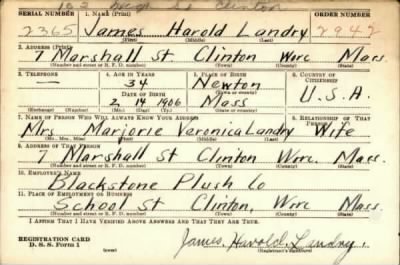 SERIAL NUMBER 1. NAME (Print) ORDER NUMBER
2365 James Harold Landry 2942
(First) (Middle) (Last)
2. ADDRESS (Print)
7 Marshall St Clinton Worc Mass.
(Number and street or R. F. D. number) (Town) (County) (State)
3. TELEPHONE 4. AGE IN YEARS 5. PLACE OF BIRTH 6. COUNTRY OF CITIZENSHIP
— 34 Newton
DATE OF BIRTH (Town or county)
2, 14 1906 Mass U.S.A.
(Exchange) (Number) (Mo.) (Day) (Yr.) (State or country)
7. NAME OF PERSON WHO WILL ALWAYS KNOW YOUR ADDRESS 8. RELATIONSHIP OF THAT PERSON
Mrs. Marjorie Veronica Landry Wife
(Mr., Mrs., Miss) (First) (Middle) (Last)
9. ADDRESS OF THAT PERSON
7 Marshall St Clinton Worc. Mass.
(Number and street or R. F. D. number) (Town) (County) (State)
10. EMPLOYER'S NAME
Blackstone Plush Co
11. PLACE OF EMPLOYMENT OR BUSINESS
School St Clinton, Worc Mass.
(Number and street or R. F. D. number) (Town) (County) (State)
I AFFIRM THAT I HAVE VERIFIED ABOVE ANSWERS AND THAT THEY ARE TRUE.
REGISTRATION CARD
D. S. S. Form 1
(over)
James, Harold, Landry.